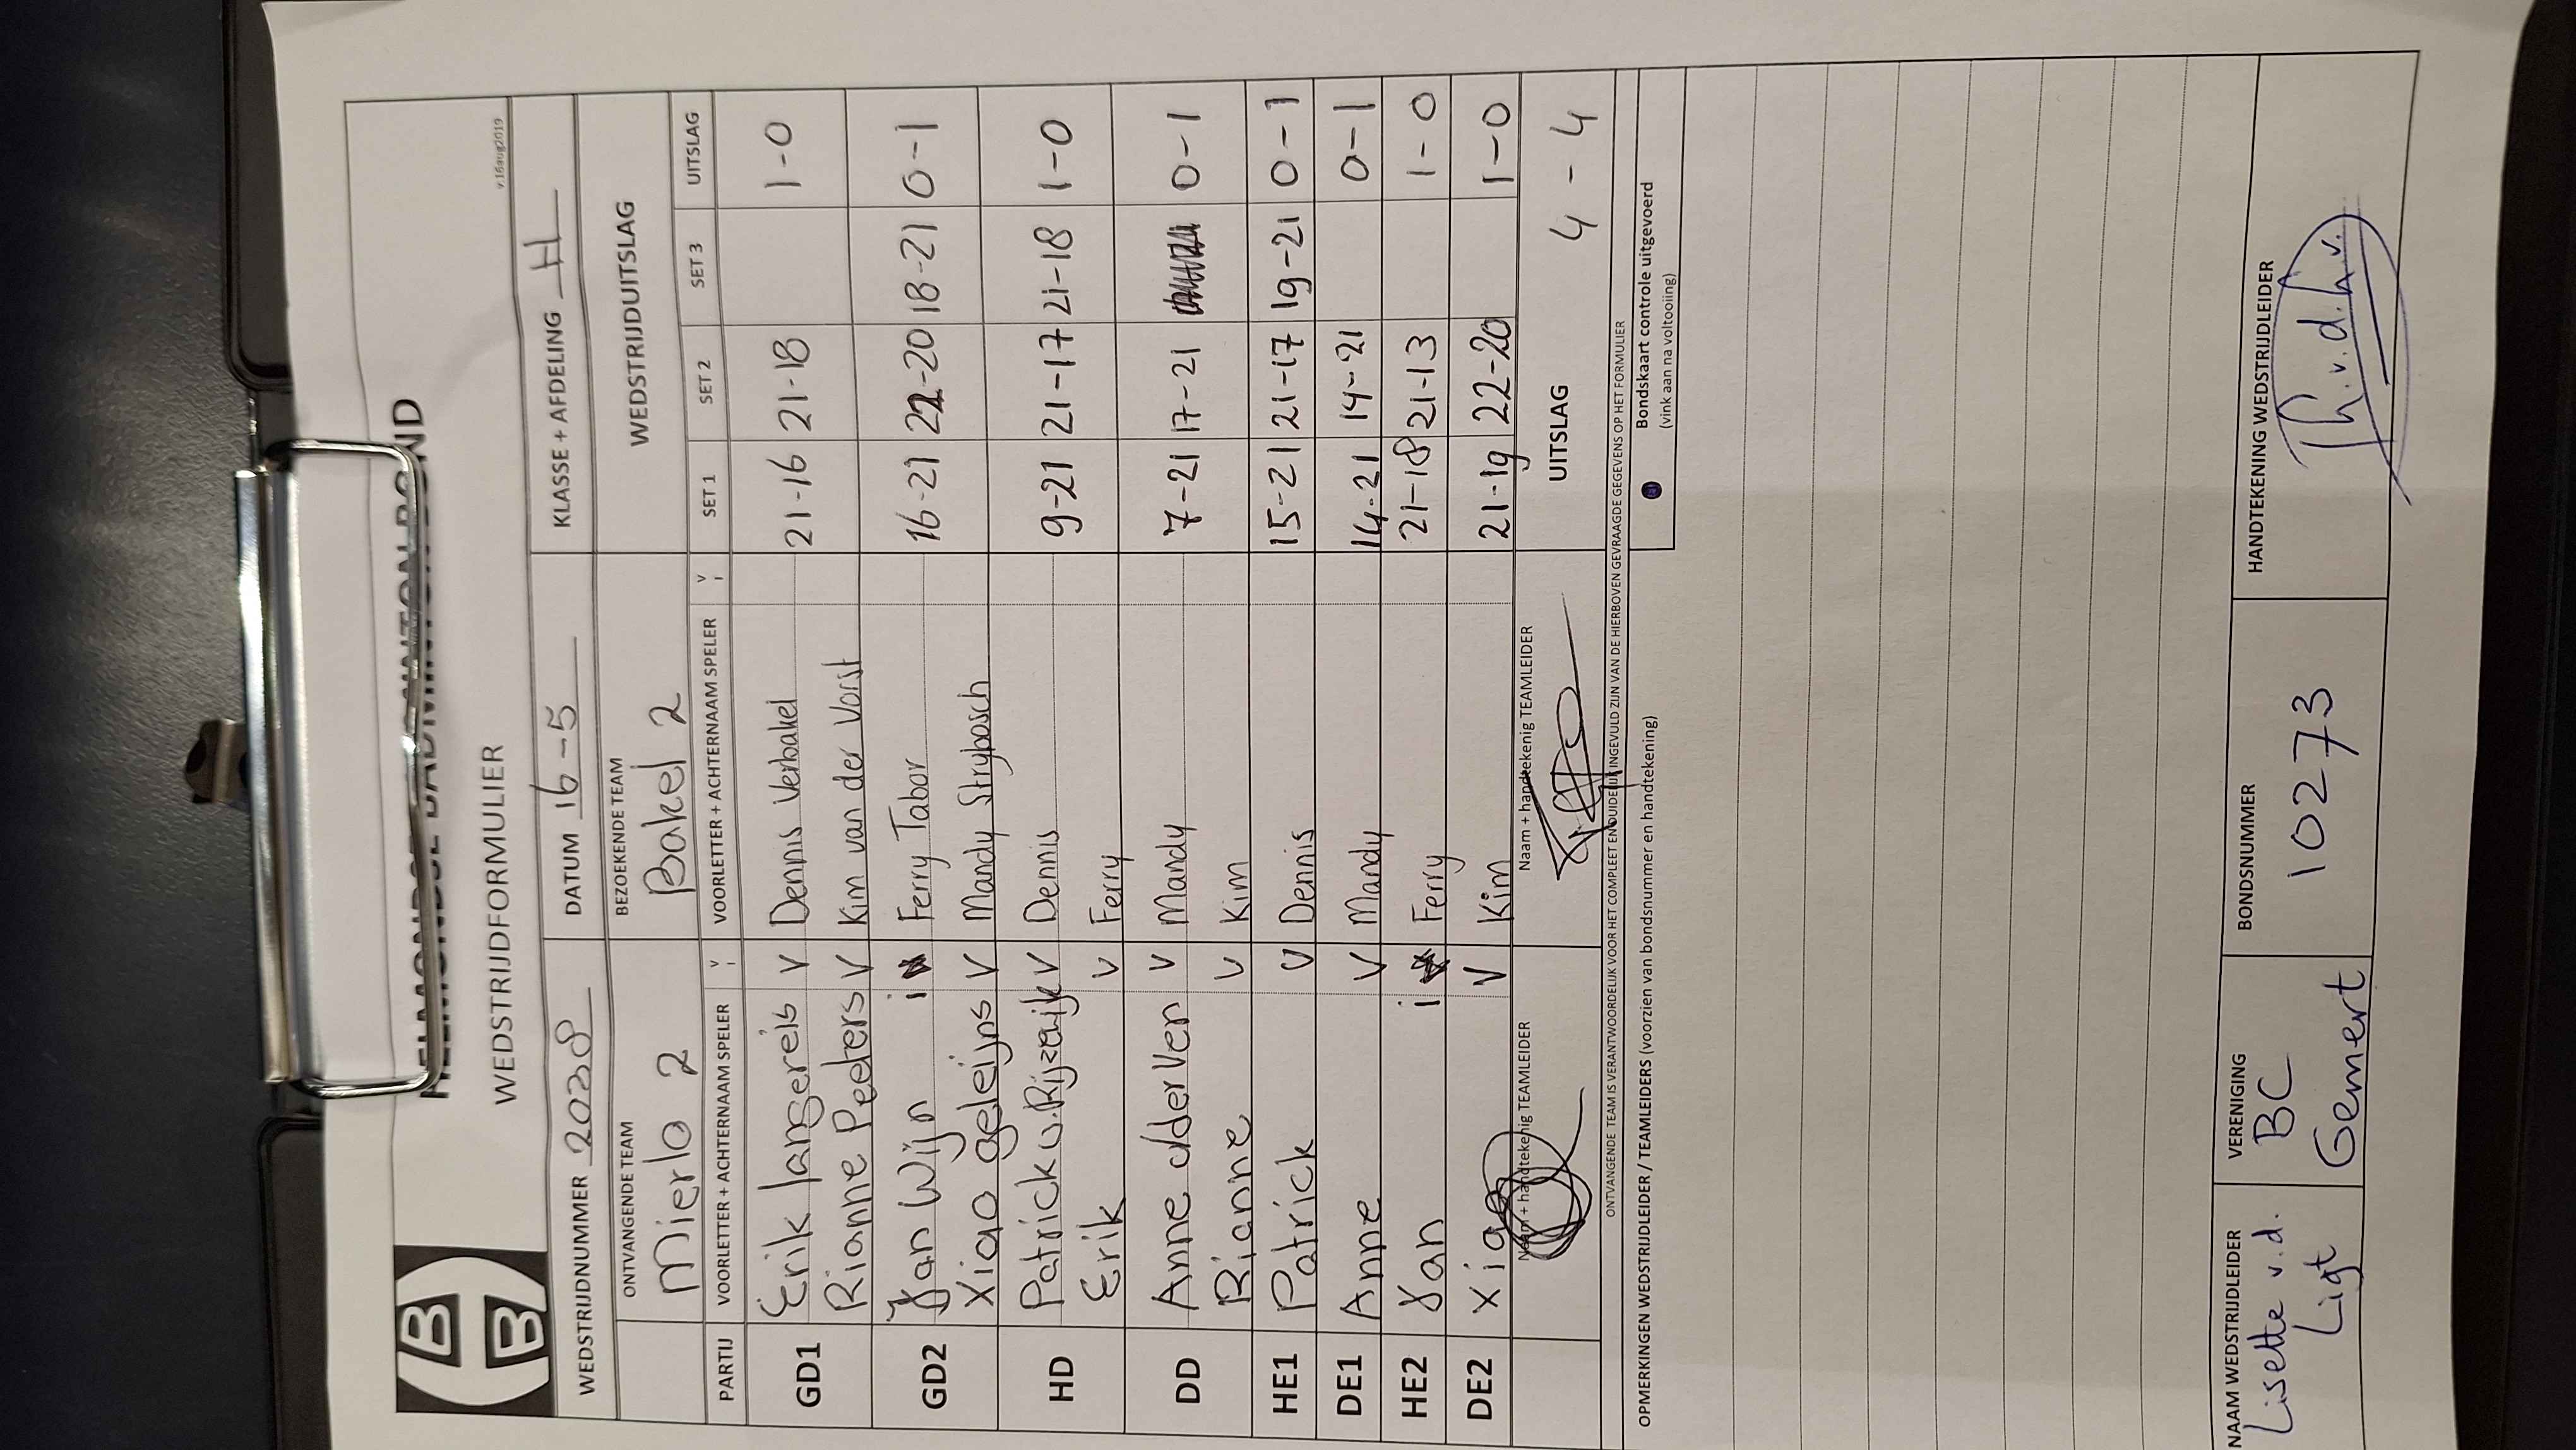 HELMONDSE BADMINTON BOND
WEDSTRIJDFORMULIER
v.16aug2019
WEDSTRIJDNUMMER 20308 DATUM 16-5 KLASSE + AFDELING H
ONTVANGENDE TEAM BEZOEKENDE TEAM WEDSTRIJDUITSLAG
Mierlo 2 Bakel 2
PARTIJ VOORLETTER + ACHTERNAAM SPELER V i VOORLETTER + ACHTERNAAM SPELER V i SET 1 SET 2 SET 3 UITSLAG
GD1 Erik langereis V Dennis Verbakel 21-16 21-18 1-0
Rianne Peeters V Kim van der Vorst
GD2 Jan Wijn i Ferry Tabor 16-21 22-20 18-21 0-1
Xiao geleijns V Mandy Strybosch
HD Patrick v. Rijzewijk V Dennis 9-21 21-17 21-18 1-0
Erik V Ferry
DD Anne vder Ven V Mandy 7-21 17-21 0-1
Rianne V Kim
HE1 Patrick V Dennis 15-21 21-17 19-21 0-1
DE1 Anne V Mandy 14-21 14-21 0-1
HE2 Jan i Ferry 21-18 21-13 1-0
DE2 Xiao V Kim 21-19 22-20 1-0
Naam + handtekenig TEAMLEIDER Naam + handtekenig TEAMLEIDER UITSLAG 4 - 4
ONTVANGENDE TEAM IS VERANTWOORDELIJK VOOR HET COMPLEET EN DUIDELIJK INGEVULD ZIJN VAN DE HIERBOVEN GEVRAAGDE GEGEVENS OP HET FORMULIER
OPMERKINGEN WEDSTRIJDLEIDER / TEAMLEIDERS (voorzien van bondsnummer en handtekening) Bondskaart controle uitgevoerd
(vink aan na voltooiing)
NAAM WEDSTRIJDLEIDER VERENIGING BONDSNUMMER HANDTEKENING WEDSTRIJDLEIDER
Lisette v.d. BC 10273 Th.v.d.h.v.
Ligt Gemert